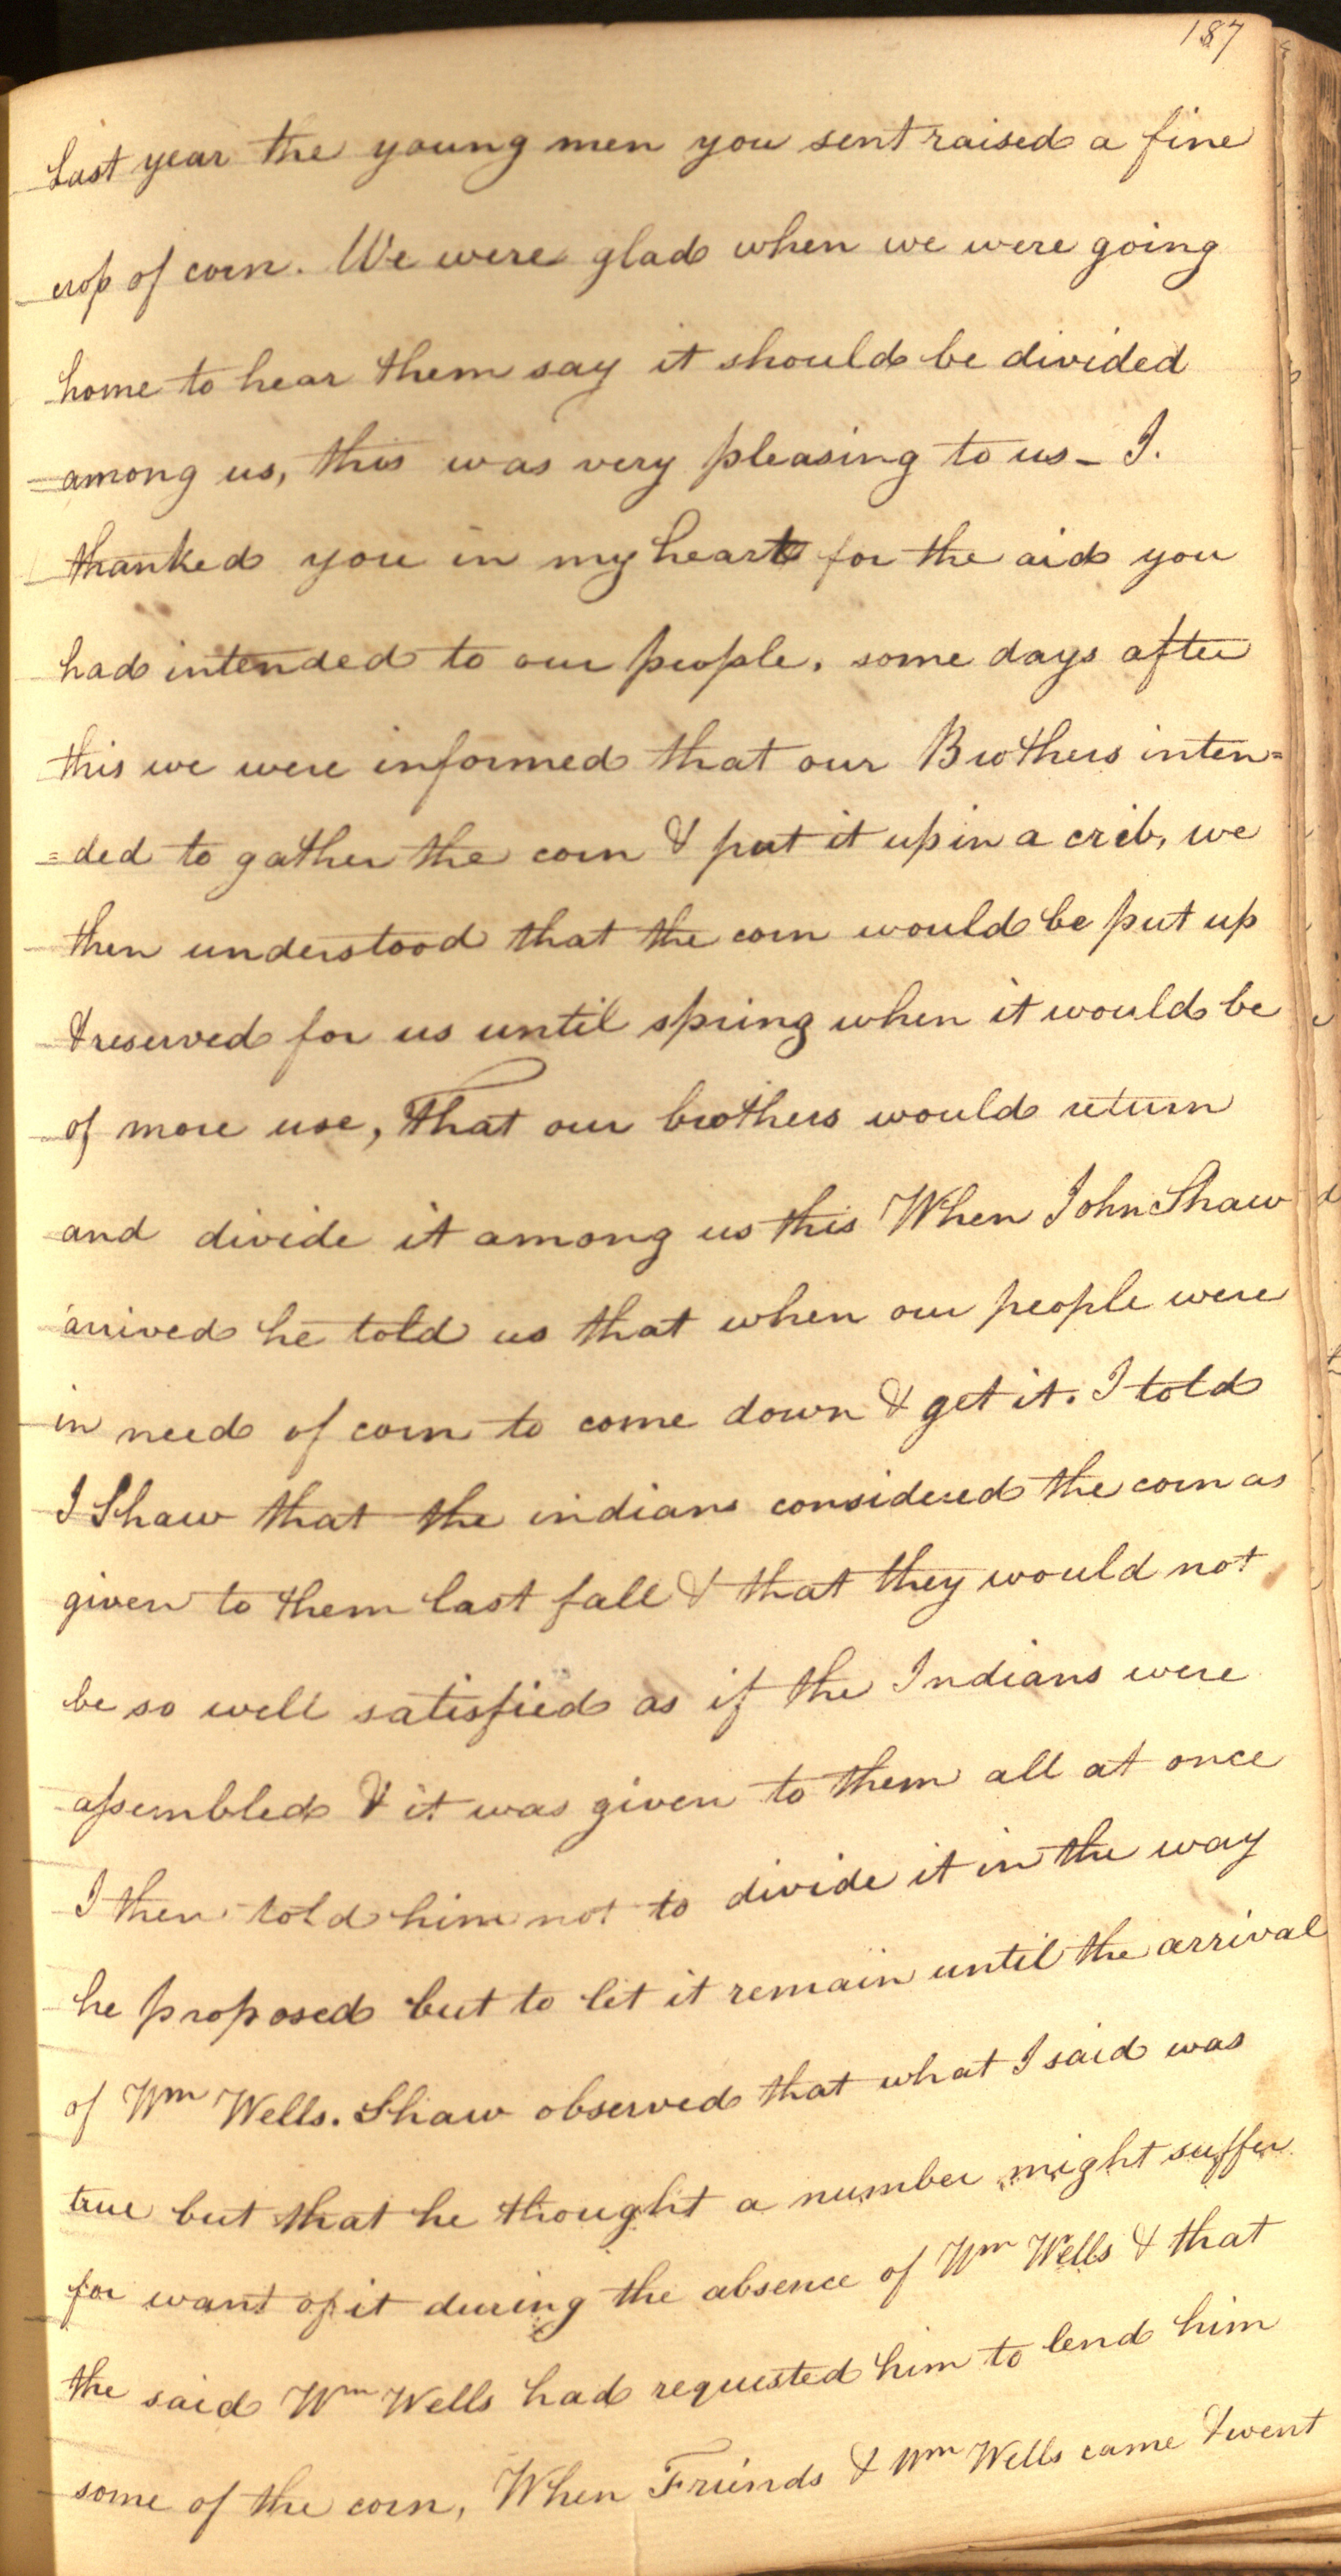 187
Last year the young men you sent raised a fine
crop of corn. We were glad when we were going
home to hear them say it should be divided
among us, this was very pleasing to us - I.
thanked you in my heart for the aid you
had intended to our people. some days after
this we were informed that our Brothers inten=
=ded to gather the corn & put it up in a crib, we
then understood that the corn would be put up
& reserved for us until spring when it would be
of more use, That our brothers would return
and divide it among us this When John Shaw
arrived he told us that when our people were
in need of corn to come down & get it. I told
J Shaw that the indians considered the corn as
given to them last fall & that they would not
be so well satisfied as if the Indians were
assembled & it was given to them all at once
I then told him not to divide it in the way
he proposed but to let it remain until the arrival
of Wm Wells. Shaw observed that what I said was
true but that he thought a number might suffer
for want of it during the absence of Wm Wells & that
the said Wm Wells had requested him to lend him
some of the corn, When Friends & Wm Wells came & went